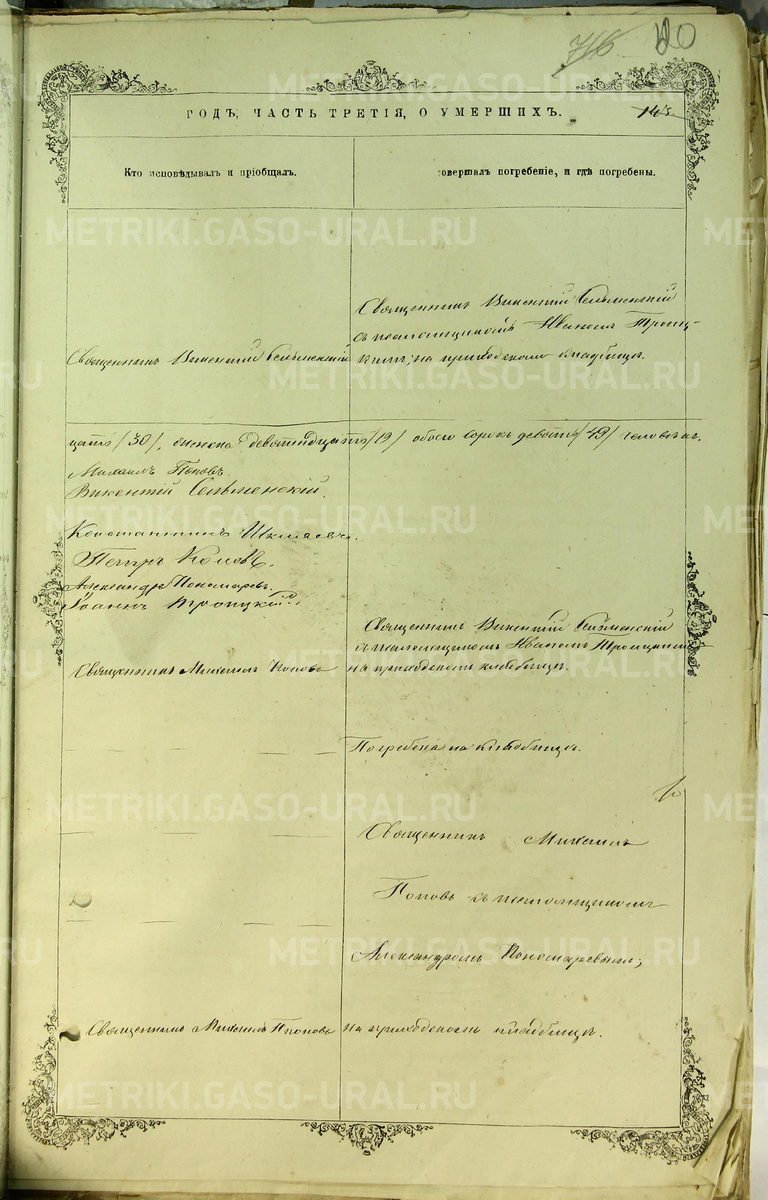 120
ГОДЪ, ЧАСТЬ ТРЕТІЯ, О УМЕРШИХЪ.
145.
Кто исповѣдывалъ и пріобщалъ.
овершалъ погребеніе, и гдѣ погребены.
Священникъ Викентій Сельменскій
съ псаломщикомъ Иваномъ Троиц-
Священникъ Викентій Сельменскій
кимъ; на приходскомъ кладбищѣ.
цать /30/, женска девятнадцать /19/ обоего сорокъ девять /49/ человѣкъ.
Михаилъ Поповъ.
Викентій Сельменскій.
Константинъ
Петръ
Александръ Пономаревъ.
Іоаннъ Троицкій
Священникъ Викентій Сельменскій
съ псаломщикомъ Иваномъ Троицкимъ
Священникъ Михаилъ Поповъ
на приходскомъ кладбищѣ.
Погребена на кладбищѣ.
Священникъ Михаилъ
Поповъ съ псаломщикомъ
Александромъ Пономаревымъ;
Священникъ Михаилъ Поповъ
на приходскомъ кладбищѣ.
METRIKI.GASO-URAL.RU